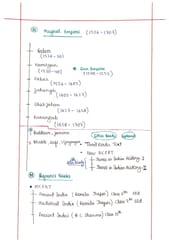 Mughal Empire (1526 - 1707)
Babur
(1526 - 30)
Humayun
(1530 - 40)
Sur Empire
(1540 - 1555)
Akbar
(1556 - 1605)
Jahangir
(1605 - 1627)
Shah Jahan
(1628 - 1658)
Aurangzeb
(1658 - 1707)
Buddhism, Jainism
Bhakti, Sufi,
Other Books
Tamil Nadu Text
New NCERT
Themes in Indian History - I
Themes in Indian History - II
Reference Books
NCERT
Ancient India (Romila Thapar) Class
Medieval India (Romila Thapar) Class
Ancient India (R.C Sharma) Class